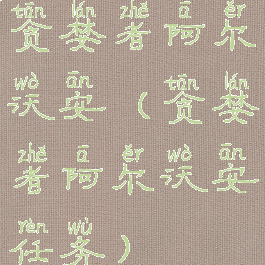 tān lán zhě ā ěr
贪婪者阿尔
wò ān tān lán
沃安（贪婪
zhě ā ěr wò ān
者阿尔沃安
rèn wù
任务）